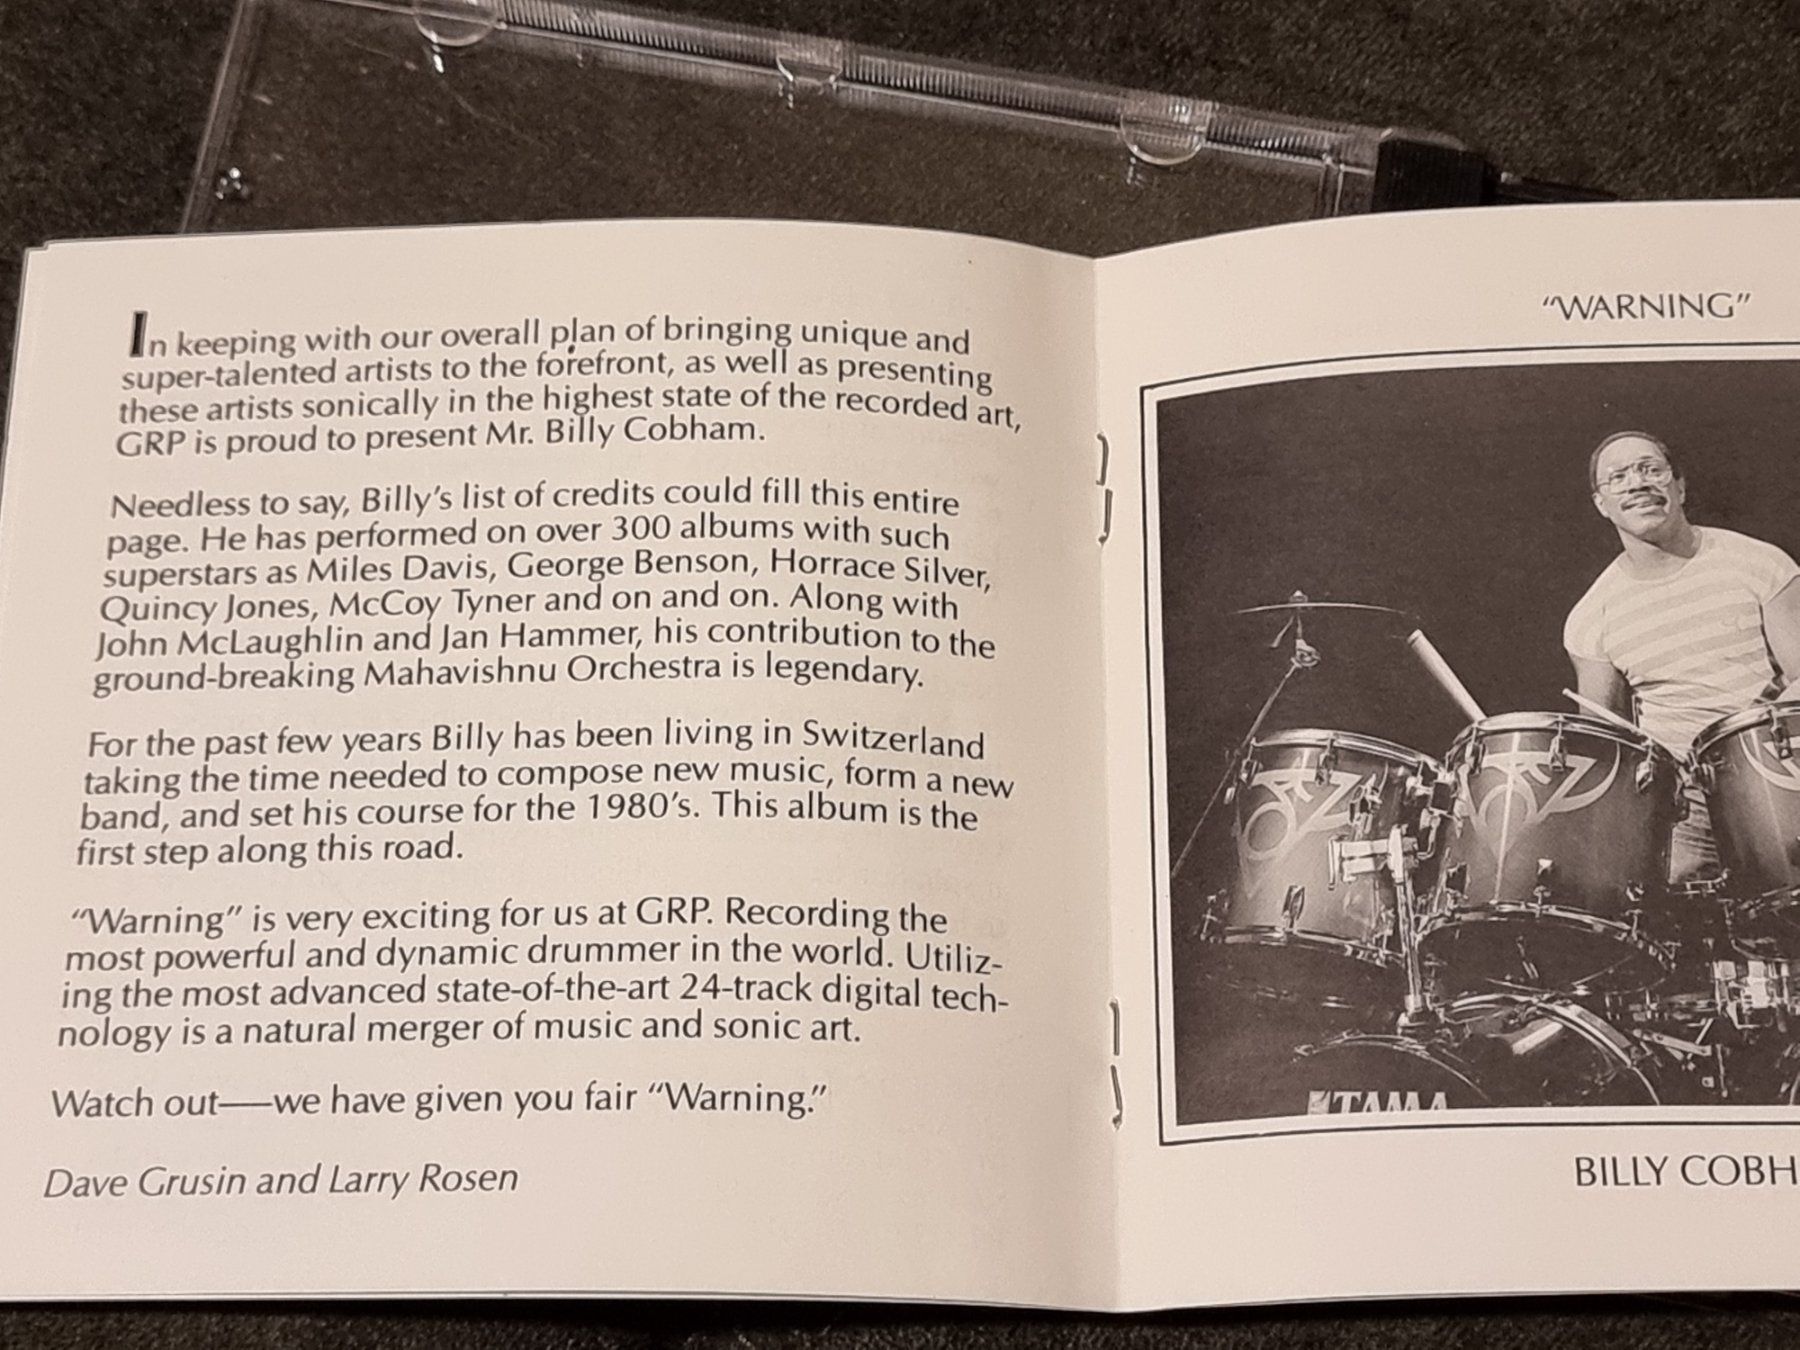 In keeping with our overall plan of bringing unique and
super-talented artists to the forefront, as well as presenting
these artists sonically in the highest state of the recorded art,
GRP is proud to present Mr. Billy Cobham.
Needless to say, Billy's list of credits could fill this entire
page. He has performed on over 300 albums with such
superstars as Miles Davis, George Benson, Horrace Silver,
Quincy Jones, McCoy Tyner and on and on. Along with
John McLaughlin and Jan Hammer, his contribution to the
ground-breaking Mahavishnu Orchestra is legendary.
For the past few years Billy has been living in Switzerland
taking the time needed to compose new music, form a new
band, and set his course for the 1980's. This album is the
first step along this road.
"Warning" is very exciting for us at GRP. Recording the
most powerful and dynamic drummer in the world. Utiliz-
ing the most advanced state-of-the-art 24-track digital tech-
nology is a natural merger of music and sonic art.
Watch out—we have given you fair "Warning."
Dave Grusin and Larry Rosen
"WARNING"
TAMA
BILLY COBH